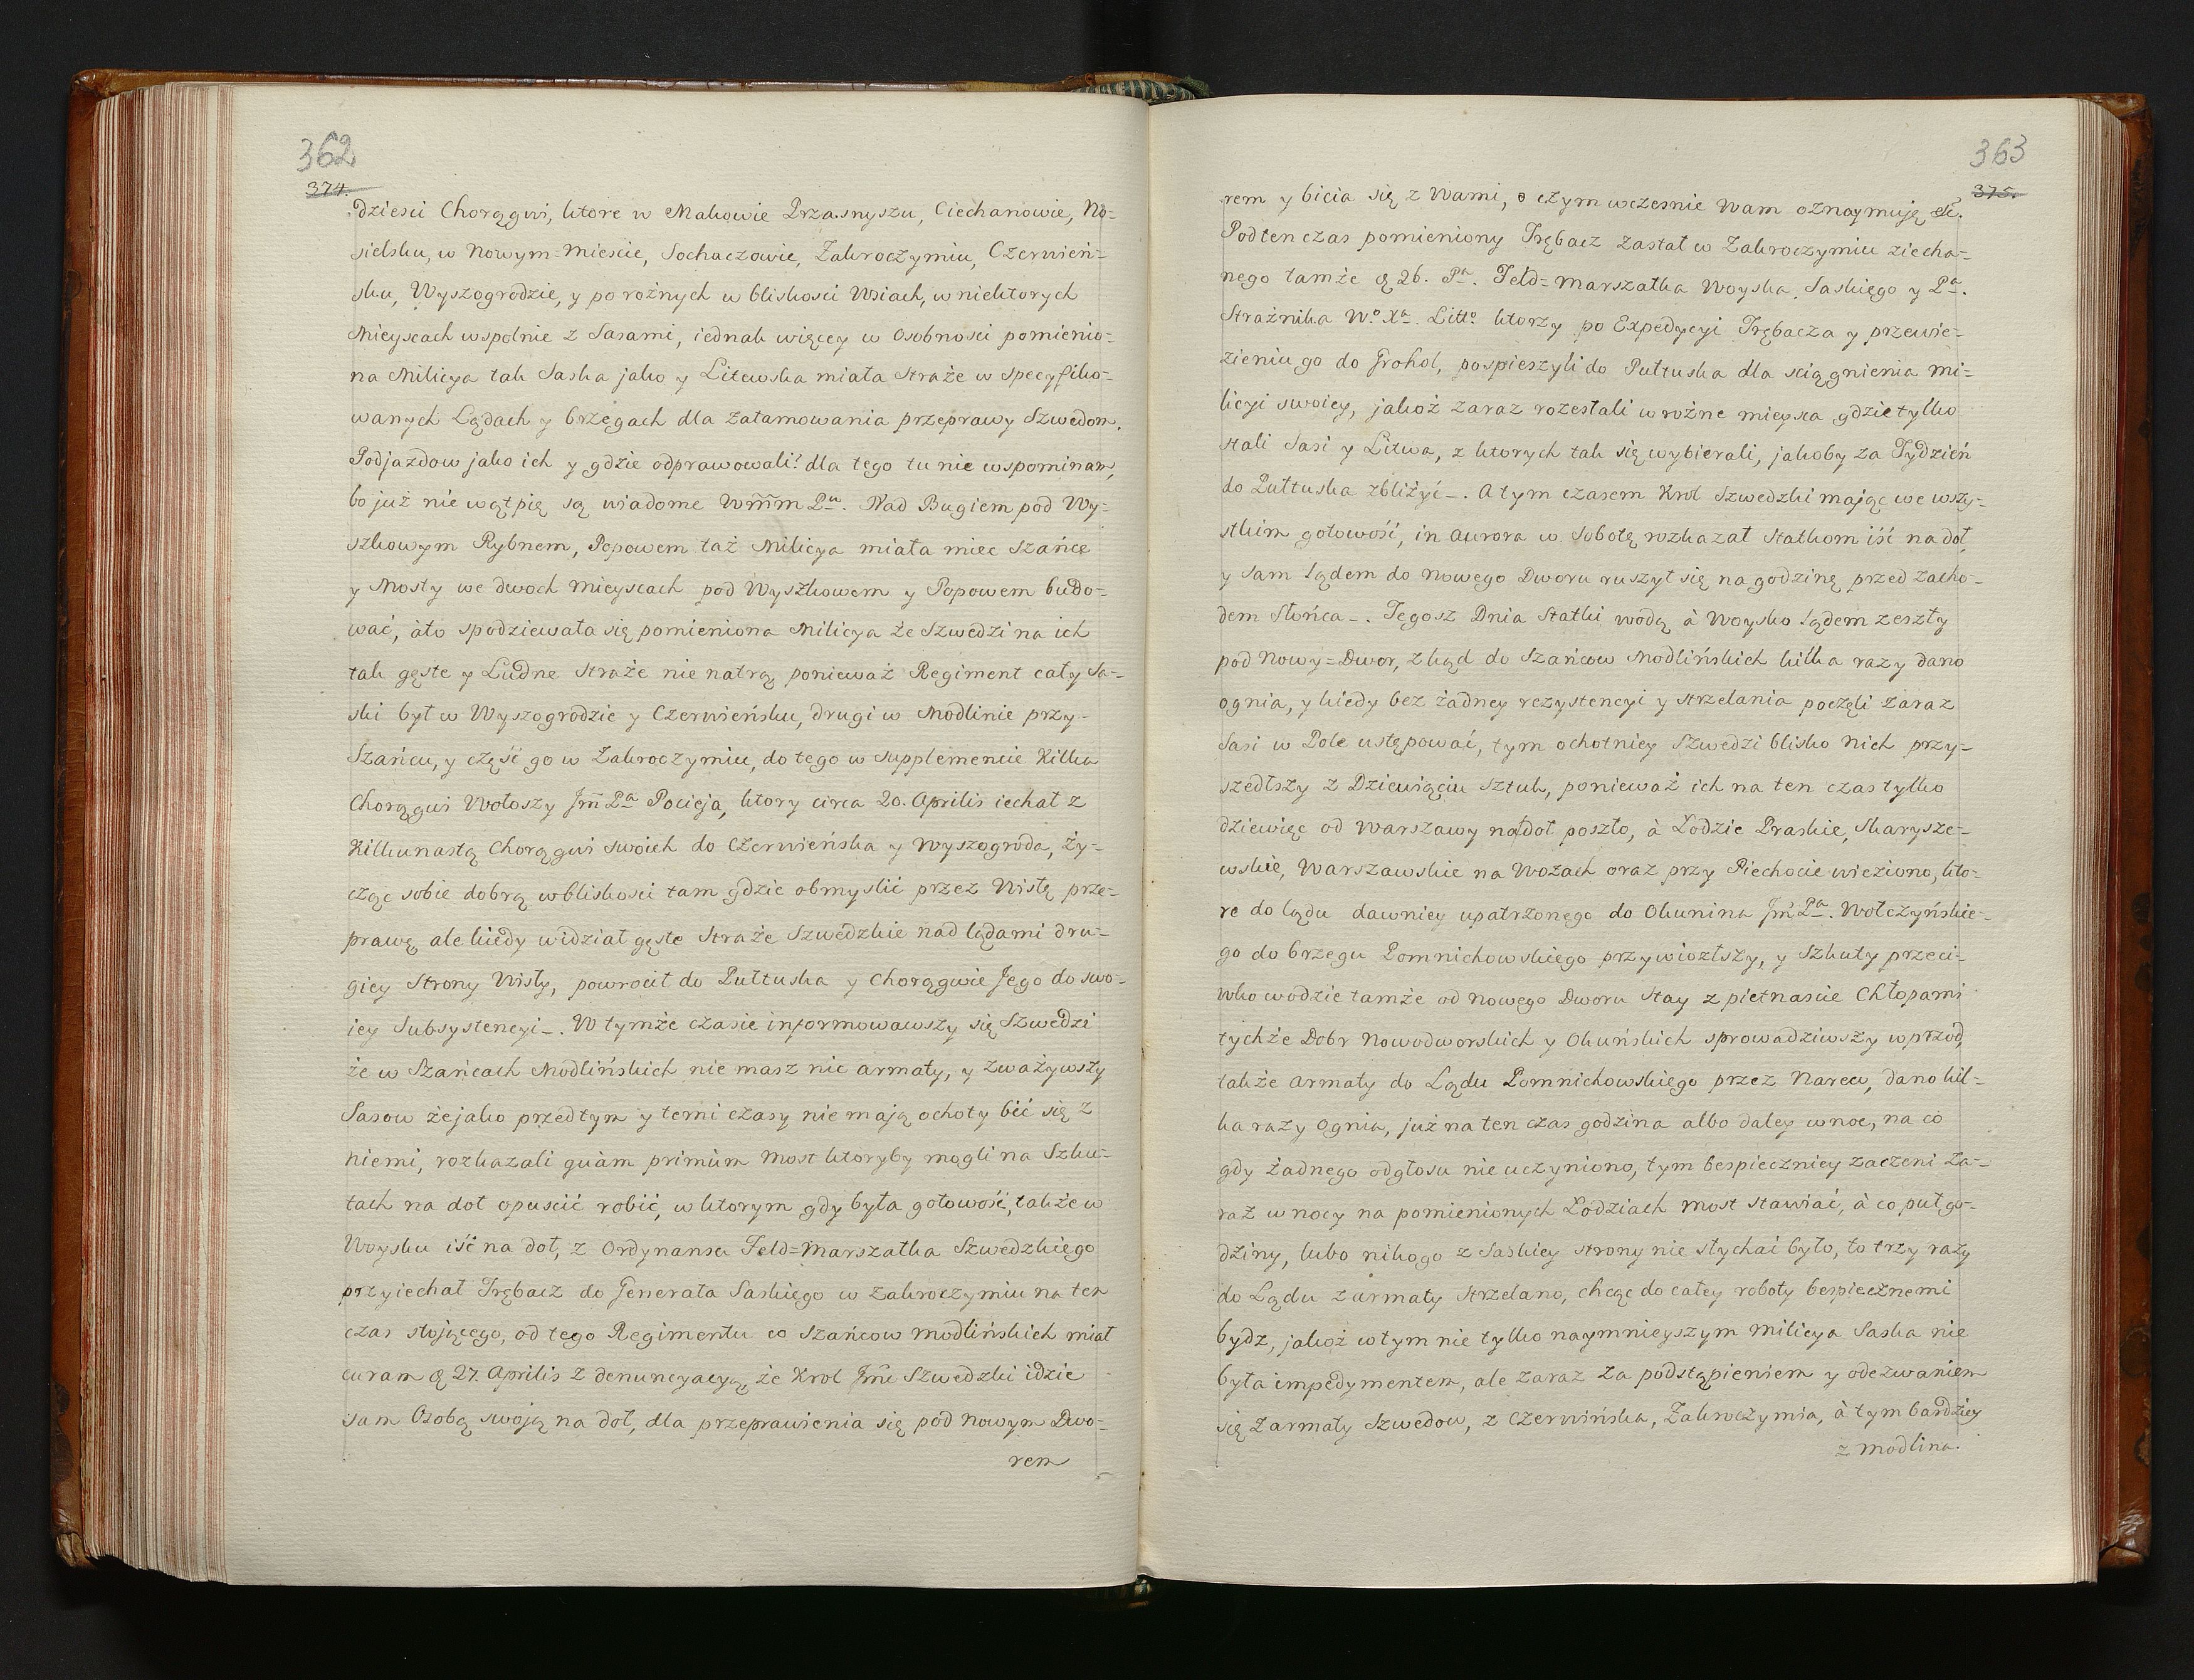 362
374.
dziesci Chorągwi, ktore w Makowie Przasnyszu, Ciechanowie, No=
sielsku, w Nowym=Miescie, Sochaczowie, Zakroczymiu, Czerwień=
sku, Wyszogrodzie, y po rożnych w bliskosci Wsiach, w niektorych
Mieyscach wspolnie z Sasami, iednak więcey w Osobnosci pomienio=
na Milicya tak Saska jako y Litewska miała Straże w specyfiko=
wanych Lądach y brzegach dla zatamowania przeprawy Szwedom.
Podjazdow jako ich y gdzie odprawowali? dla tego tu nie wspominam,
bo już nie wątpię są wiadome Wm̃m Pu. Nad Bugiem pod Wy=
szkowym Rybnem, Popowem taż Milicya miała miec Szańce
y Mosty we dwoch mieyscach pod Wyszkowem y Popowem budo=
wać, àto spodziewała się pomieniona Milicya że Szwedzi na ich
tak gęste y Ludne Straże nie natrą ponieważ Regiment cały Sa=
ski był w Wyszogrodzie y Czerwieńsku, drugi w Modlinie przy
Szańcu, y część go w Zakroczymiu, do tego w supplemencie Kilka
Chorągwi Wołoszy Jm̃ Pa Pocieja, ktory circa 20. Aprilis iechał z
Kilkunastą Chorągwi swoich do Czerwieńska y Wyszogroda, ży=
cząc sobie dobrą w bliskosci tam gdzie obmyslić przez Wisłę prze=
prawę ale kiedy widział gęste Straże Szwedzkie nad lądami dru=
giey Strony Wisły, powrocił do Pułtuska y Chorągwie Jego do swo=
iey Subsystencyi_. W tymże czasie informowawszy się Szwedzi
że w Szańcach Modlińskich nie masz nic armaty, y zważywszy
Sasow że jako przedtym y temi czasy nie mają ochoty bić się z
niemi, rozkazali quàm primùm Most ktoryby mogli na Szku=
tach na doł opuscić robić, w ktorym gdy była gotowość, także w
Woysku iść na doł, z Ordynansu Feld=Marszałka Szwedzkiego
przyiechał Trębacz do Generała Saskiego w Zakroczymiu na ten
czas stojącego, od tego Regimentu co Szańcow Modlińskich miał
curam ą 27. Aprilis z denuncyacyą, że Krol Jm̃ć Szwedzki idzie
sam Osobą swoją na doł, dla przeprawienia się pod Nowym Dwo=
rem
363
375.
rem y bicia się z Wami, o czym wczesnie Wam oznaymuję etc.
Podten czas pomieniony Trębacz zastał w Zakroczymiu ziecha=
nego tamże ą 26. Pa. Feld=Marszałka Woyska Saskiego y Pa.
Strażnika W.o Xa. Litto. ktorzy po Expedycyi Trębacza y przewie=
zieniu go do Grohol, pospieszyli do Pułtuska dla sciągnienia mi=
licyi swoiey, jakoż zaraz rozesłali w rożne mieysca gdzie tylko
stali Sasi y Litwa, z ktorych tak się wybierali, jakoby za Tydzień
do Pułtuska zbliżyć_. A tym czasem Krol Szwedzki mając we wszy=
stkim gotowość, in aurora w Sobotę rozkazał Statkom iść na doł,
y sam Lądem do Nowego Dworu ruszył się na godzinę przed zacho=
dem Słońca_. Tegosz Dnia Statki wodą à Woysko Lądem zeszły
pod Nowy=Dwor, zkąd do Szańcow Modlińskich kilka razy dano
ognia, y kiedy bez żadney rezystencyi y strzelania poczęli zaraz
Sasi w Pole ustępować, tym ochotniey Szwedzi blisko nich przy=
szedłszy z Dziewiąciu Sztuk, ponieważ ich na ten czas tylko
dziewięc od Warszawy na doł poszło, à Łodzie Praskie, Skarysze=
wskie, Warszawskie na Wozach oraz przy Piechocie wieziono, kto=
re do lądu dawniey upatrzonego do Okunina Jm̃ Pa. Wołczyńskie=
go do brzegu Pomnichowskiego przywiozłszy, y Szkuty przeci=
wko wodzie tamże od Nowego Dworu Stay z pietnascie Chłopami
tychże Dobr Nowodworskich y Okuńskich sprowadziwszy wprzod,
także armaty do Lądu Pomnichowskiego przez Narew, dano kil=
ka razy Ognia, już na ten czas godzina albo daley w noc, na co
gdy żadnego odgłosu nie uczyniono, tym bespieczniey zaczeni za=
raz w nocy na pomienionych Łodziach most stawiać, à co puł go=
dziny, lubo nikogo z Saskiey strony nie słychać było, to trzy razy
do Lądu z armaty strzelano, chcąc do całey roboty bespiecznemi
bydz, jakoż w tym nie tylko naymnieyszym Milicya Saska nie
była impedymentem, ale zaraz za podstąpieniem y odezwaniem
się z armaty Szwedow, z Czerwińska, Zakroczymia, à tym bardziey
z Modlina.